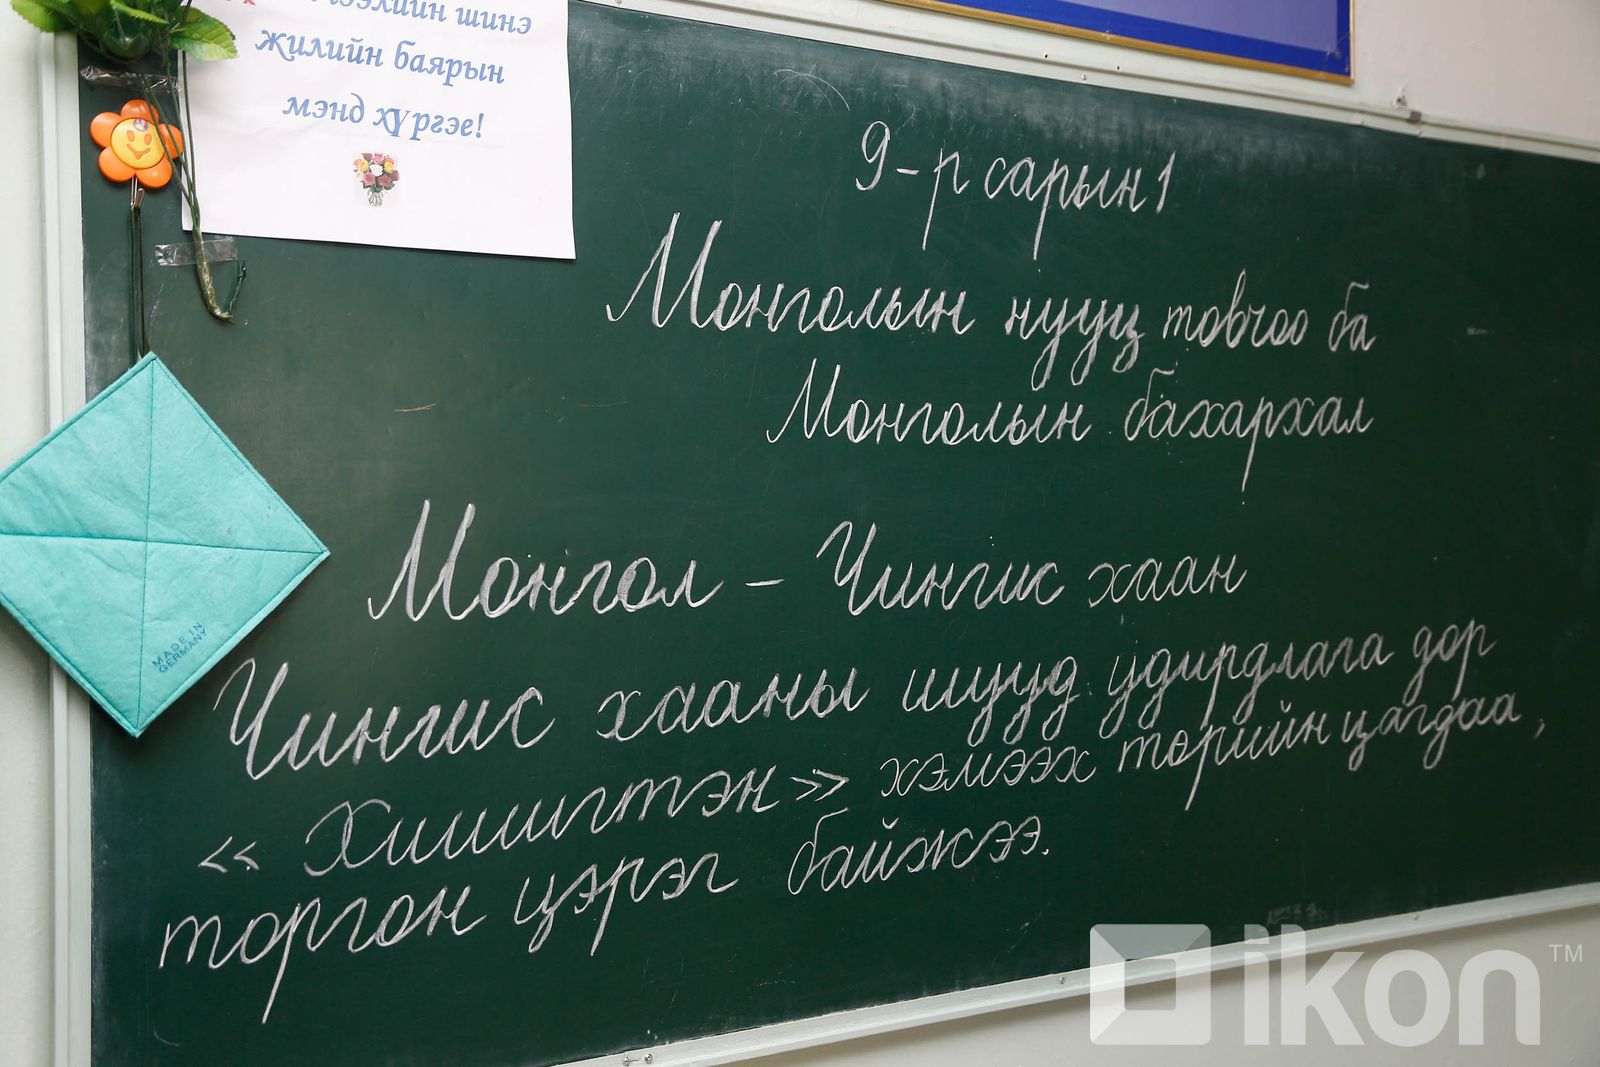 шинэ
жилийн баярын
мэнд хүргэе!
9-р сарын 1
Монголын нууц товчоо ба
Монголын бахархал
Монгол - Чингис хаан
Чингис хааны шууд удирдлага дор
« Хишигтэн » хэмээх төрийн цагдаа,
торгон цэрэг байжээ.
MADE IN
GERMANY
ikon TM